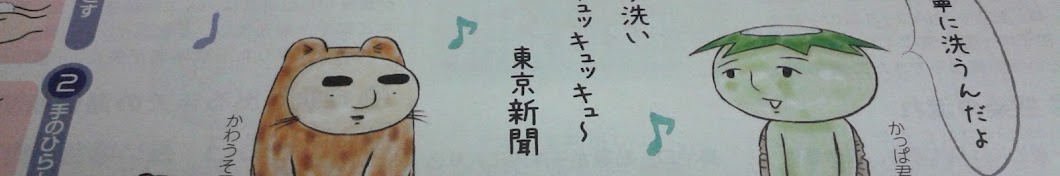 寧に洗うんだよ
洗い
ュッキュッキュ〜
東京新聞
かっぱ君
かわうそ
とす
2 手のひら